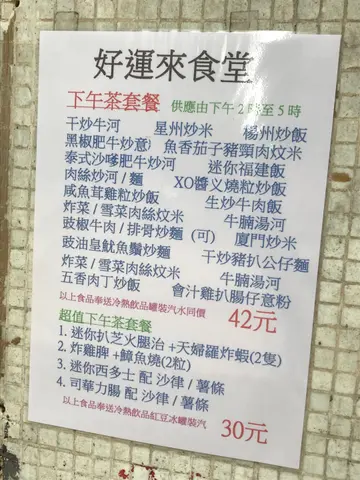 好運來食堂
下午茶套餐 供應由下午2時至5時
干炒牛河 星州炒米 楊州炒飯
黑椒肥牛炒意 魚香茄子豬頸肉炆米
泰式沙嗲肥牛炒河 迷你福建飯
肉絲炒河/麵 XO醬义燒粒炒飯
咸魚茸雞粒炒飯 生炒牛肉飯
炸菜/雪菜肉絲炆米 牛腩湯河
豉椒牛肉/排骨炒麵 (可) 廈門炒米
豉油皇魷魚鬚炒麵 干炒豬扒公仔麵
炸菜/雪菜肉絲炆米 牛腩湯河
五香肉丁炒飯 會汁雞扒腸仔意粉
以上食品奉送冷熱飲品罐裝汽水同價 42元
超值下午茶套餐
1. 迷你扒芝火腿治+天婦羅炸蝦(2隻)
2. 炸雞脾+鱆魚燒(2粒)
3. 迷你西多士 配 沙律/薯條
4. 司華力腸 配 沙律/薯條
以上食品奉送冷熱飲品紅豆冰罐裝汽 30元